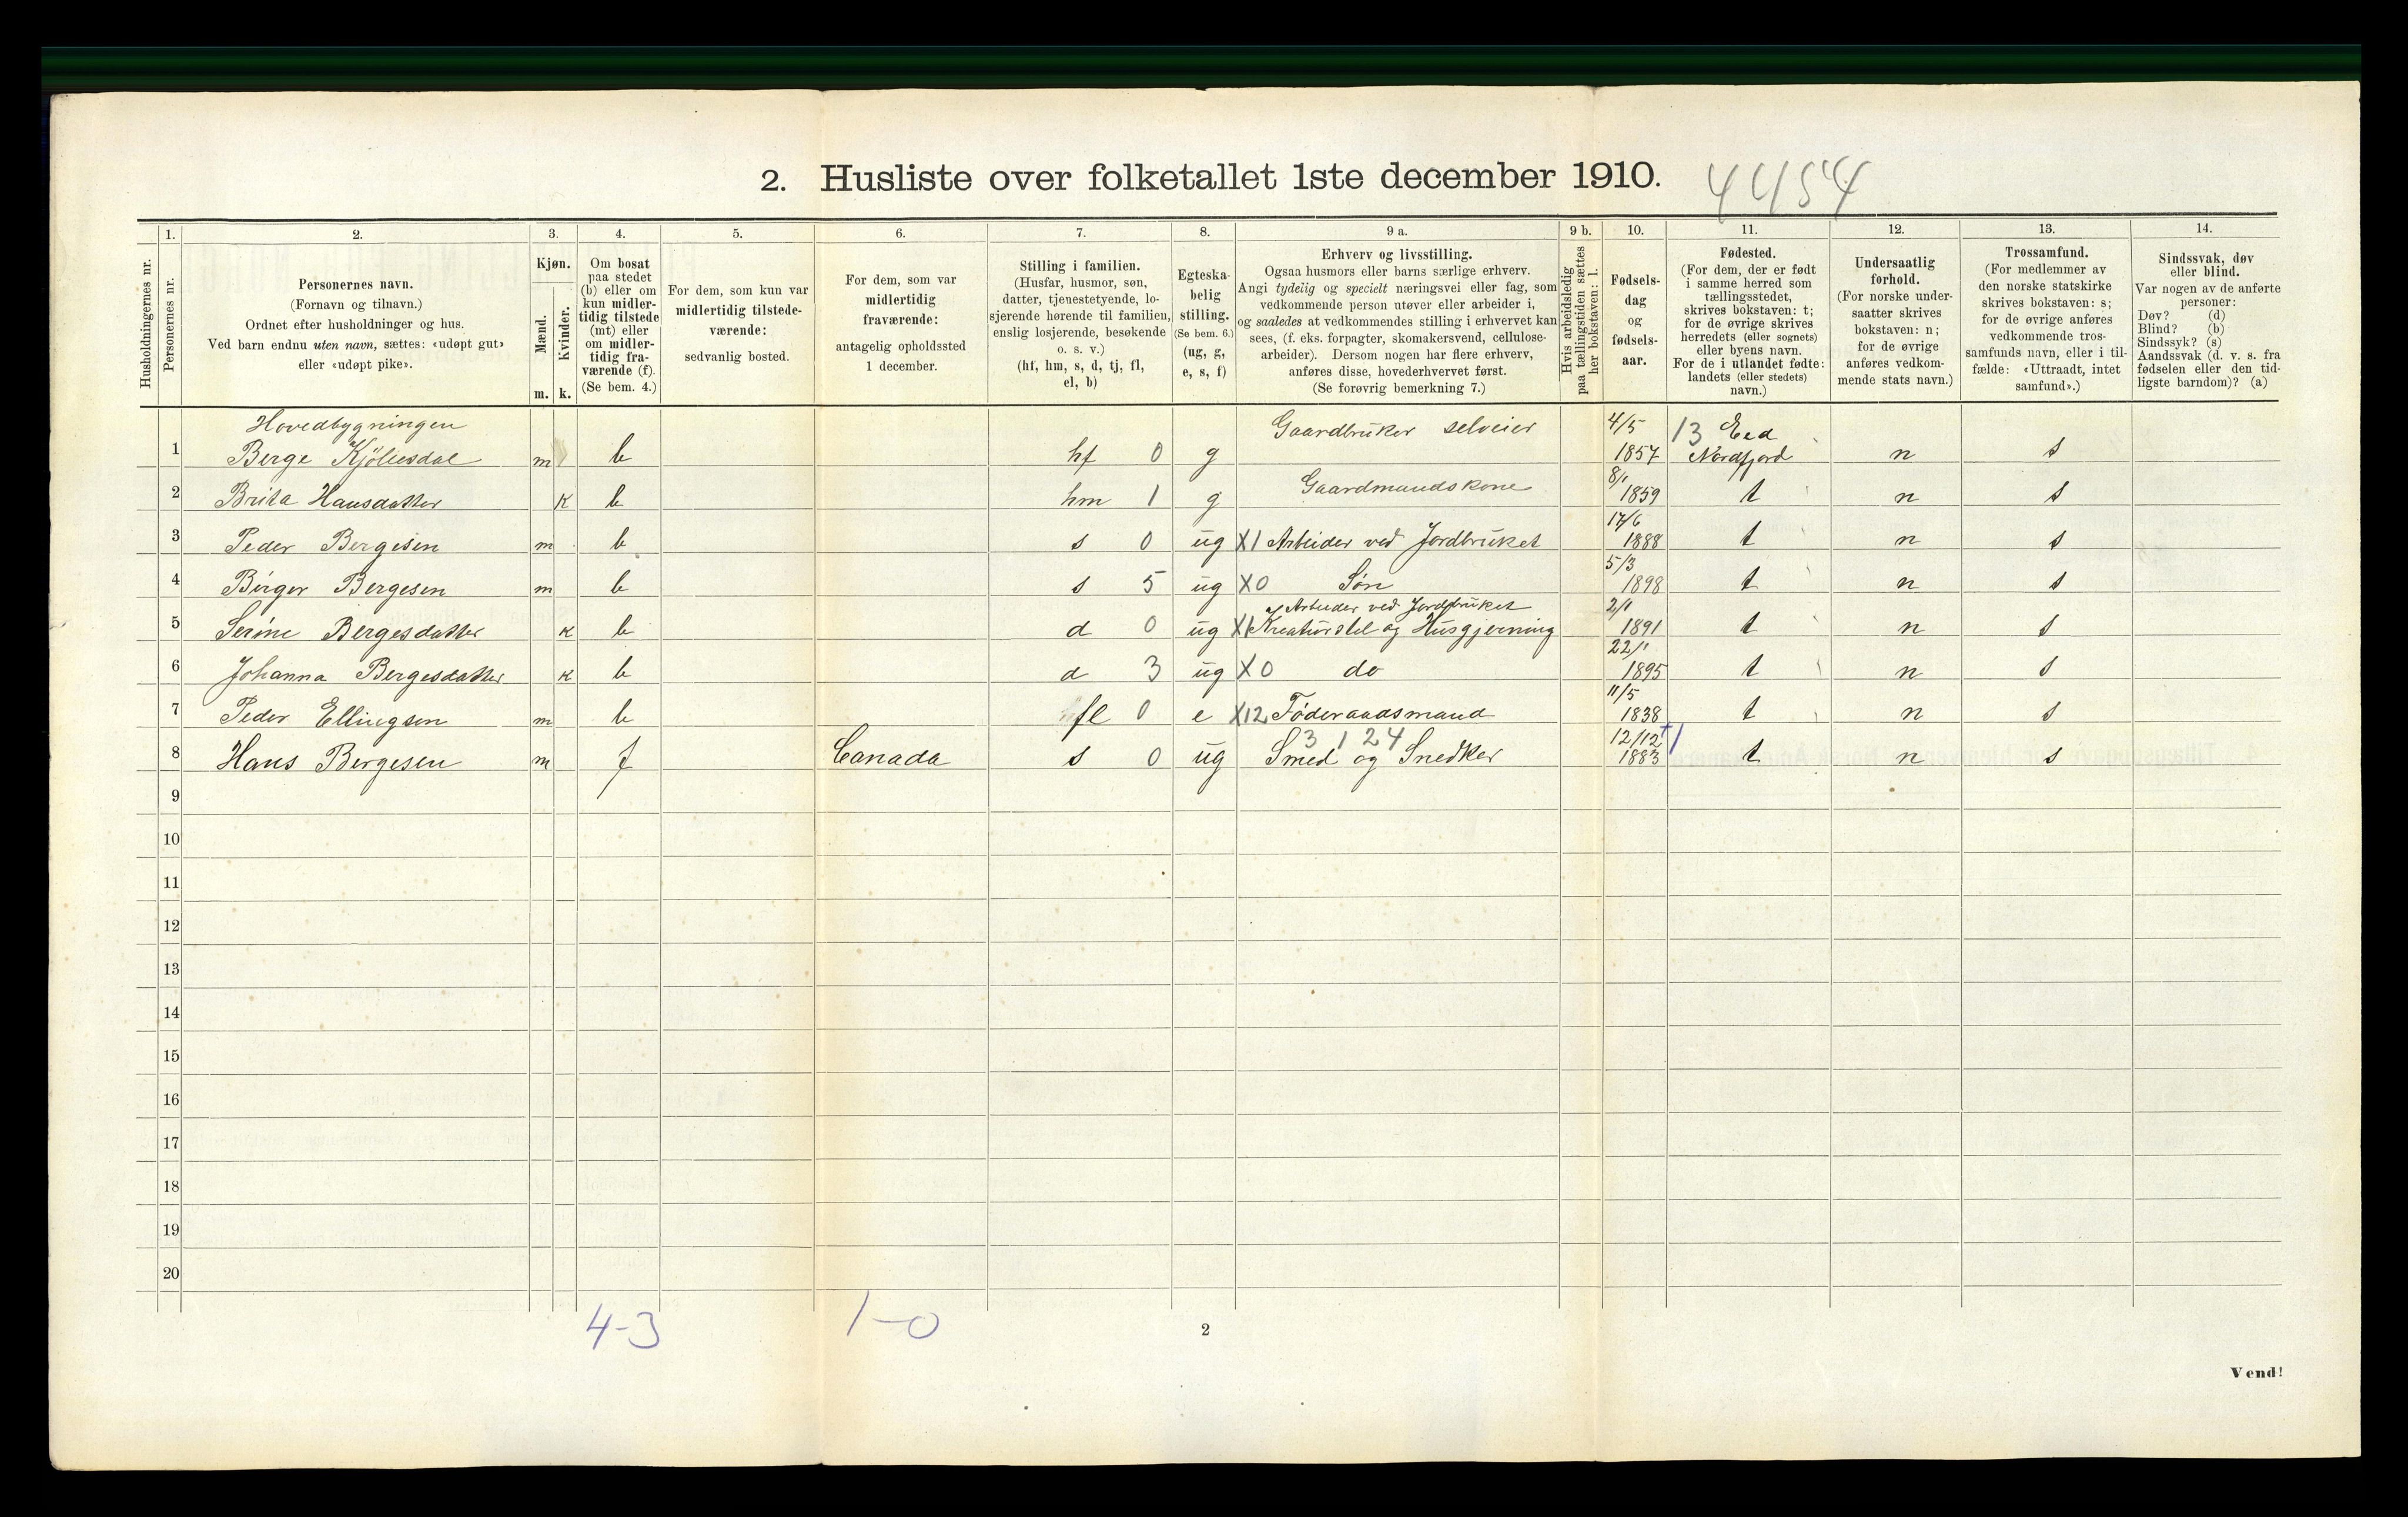 2. Husliste over folketallet 1ste december 1910.
4454
Husholdningernes nr.
1.
Personernes nr.
2.
Personernes navn.
(Fornavn og tilnavn.)
Ordnet efter husholdninger og hus.
Ved barn endnu uten navn, sættes: «udøpt gut»
eller «udøpt pike».
3.
Kjøn.
Mænd.
Kvinder.
m. k.
4.
Om bosat
paa stedet
(b) eller om
kun midler-
tidig tilstede
(mt) eller
om midler-
tidig fra-
værende (f).
(Se bem. 4.)
5.
For dem, som kun var
midlertidig tilstede-
værende:
sedvanlig bosted.
6.
For dem, som var
midlertidig
fraværende:
antagelig opholdssted
1 december.
7.
Stilling i familien.
(Husfar, husmor, søn,
datter, tjenestetyende, lo-
sjerende hørende til familien,
enslig losjerende, besøkende
o. s. v.)
(hf, hm, s, d, tj, fl,
el, b)
8.
Egteska-
belig
stilling.
(Se bem. 6.)
(ug, g,
e, s, f)
9 a.
Erhverv og livsstilling.
Ogsaa husmors eller barns særlige erhverv.
Angi tydelig og specielt næringsvei eller fag, som
vedkommende person utøver eller arbeider i,
og saaledes at vedkommendes stilling i erhvervet kan
sees, (f. eks. forpagter, skomakersvend, cellulose-
arbeider). Dersom nogen har flere erhverv,
anføres disse, hovederhvervet først.
(Se forøvrig bemerkning 7.)
9 b.
Hvis arbeidsledig
paa tællingstiden sættes
her bokstaven: l.
10.
Fødsels-
dag
og
fødsels-
aar.
11.
Fødested.
(For dem, der er født
i samme herred som
tællingsstedet,
skrives bokstaven: t;
for de øvrige skrives
herredets (eller sognets)
eller byens navn.
For de i utlandet fødte:
landets (eller stedets)
navn.)
12.
Undersaatlig
forhold.
(For norske under-
saatter skrives
bokstaven: n;
for de øvrige
anføres vedkom-
mende stats navn.)
13.
Trossamfund.
(For medlemmer av
den norske statskirke
skrives bokstaven: s;
for de øvrige anføres
vedkommende tros-
samfunds navn, eller i til-
fælde: «Uttraadt, intet
samfund».)
14.
Sindssvak, døv
eller blind.
Var nogen av de anførte
personer:
Døv? (d)
Blind? (b)
Sindssyk? (s)
Aandssvak (d. v. s. fra
fødselen eller den tid-
ligste barndom)? (a)
Hovedbygningen Gaardbruker selveier 4/5 13 Eed
1 Berge Kjøllesdal m b hf 0 g 1857 Nordfjord n s
2 Brita Hansdatter k b hm 1 g Gaardmandskone 8/1 1859 t n s
3 Peder Bergesen m b s 0 ug X1 Arbeider ved Jordbruket 17/6 1888 t n s
4 Birger Bergesen m b s 5 ug X0 Søn 5/3 1898 t n s
Arbeider ved Jordbruket 2/1
5 Serine Bergesdatter k b d 0 ug X1 Kreaturstel og Husgjerning 1891 t n s
6 Johanna Bergesdatter k b d 3 ug X0 do 22/1 1895 t n s
7 Peder Ellingsen m b fl 0 e X12 Føderaadsmand 11/5 1838 t n s
3 1 24 12/12 +1
8 Hans Bergesen m f Canada s 0 ug Smed og Snedker 1883 t n s
9
10
11
12
13
14
15
16
17
18
19
20
4-3 1-0
2
Vend!